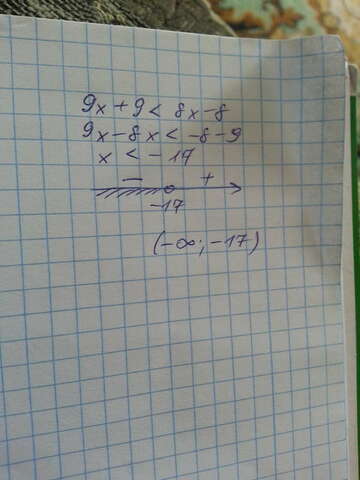 9x + 9 < 8x - 8
9x - 8x < -8 - 9
x < -17
- +
-17
(-∞; -17)